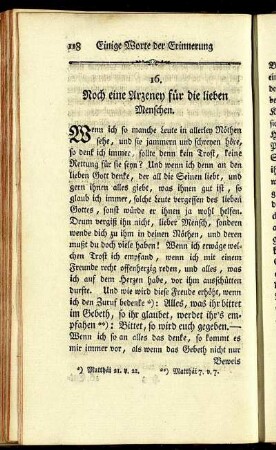 118 Einige Worte der Erinnerung
16.
Noch eine Arzeney für die lieben
Menschen.
Wenn ich so manche Leute in allerley Nöthen
sehe, und sie jammern und schreyen höre,
so denk ich immer, sollte denn kein Trost, keine
Rettung für sie seyn? Und wenn ich denn an den
lieben Gott denke, der all die Seinen liebt, und
gern ihnen alles giebt, was ihnen gut ist, so
glaub ich immer, solche Leute vergessen des lieben
Gottes, sonst würde er ihnen ja wohl helfen.
Drum vergiß ihn nicht, lieber Mensch, sondern
wende dich zu ihm in deinen Nöthen, und deren
mußt du doch viele haben! Wenn ich erwäge wel-
chen Trost ich empfand, wenn ich mit einem
Freunde recht offenherzig reden, und alles, was
ich auf dem Herzen habe, vor ihm ausschütten
durfte. Und wie wird diese Freude erhöht, wenn
ich den Zuruf bedenke *): Alles, was ihr bittet
im Gebeth, so ihr glaubet, werdet ihr's em-
pfahen **): Bittet, so wird euch gegeben. —
Wenn ich so an alles das denke, so kommt es
mir immer vor, als wenn das Gebeth nicht nur
Beweis
*) Matthäi 21. v. 22. **) Matthäi 7. v. 7.